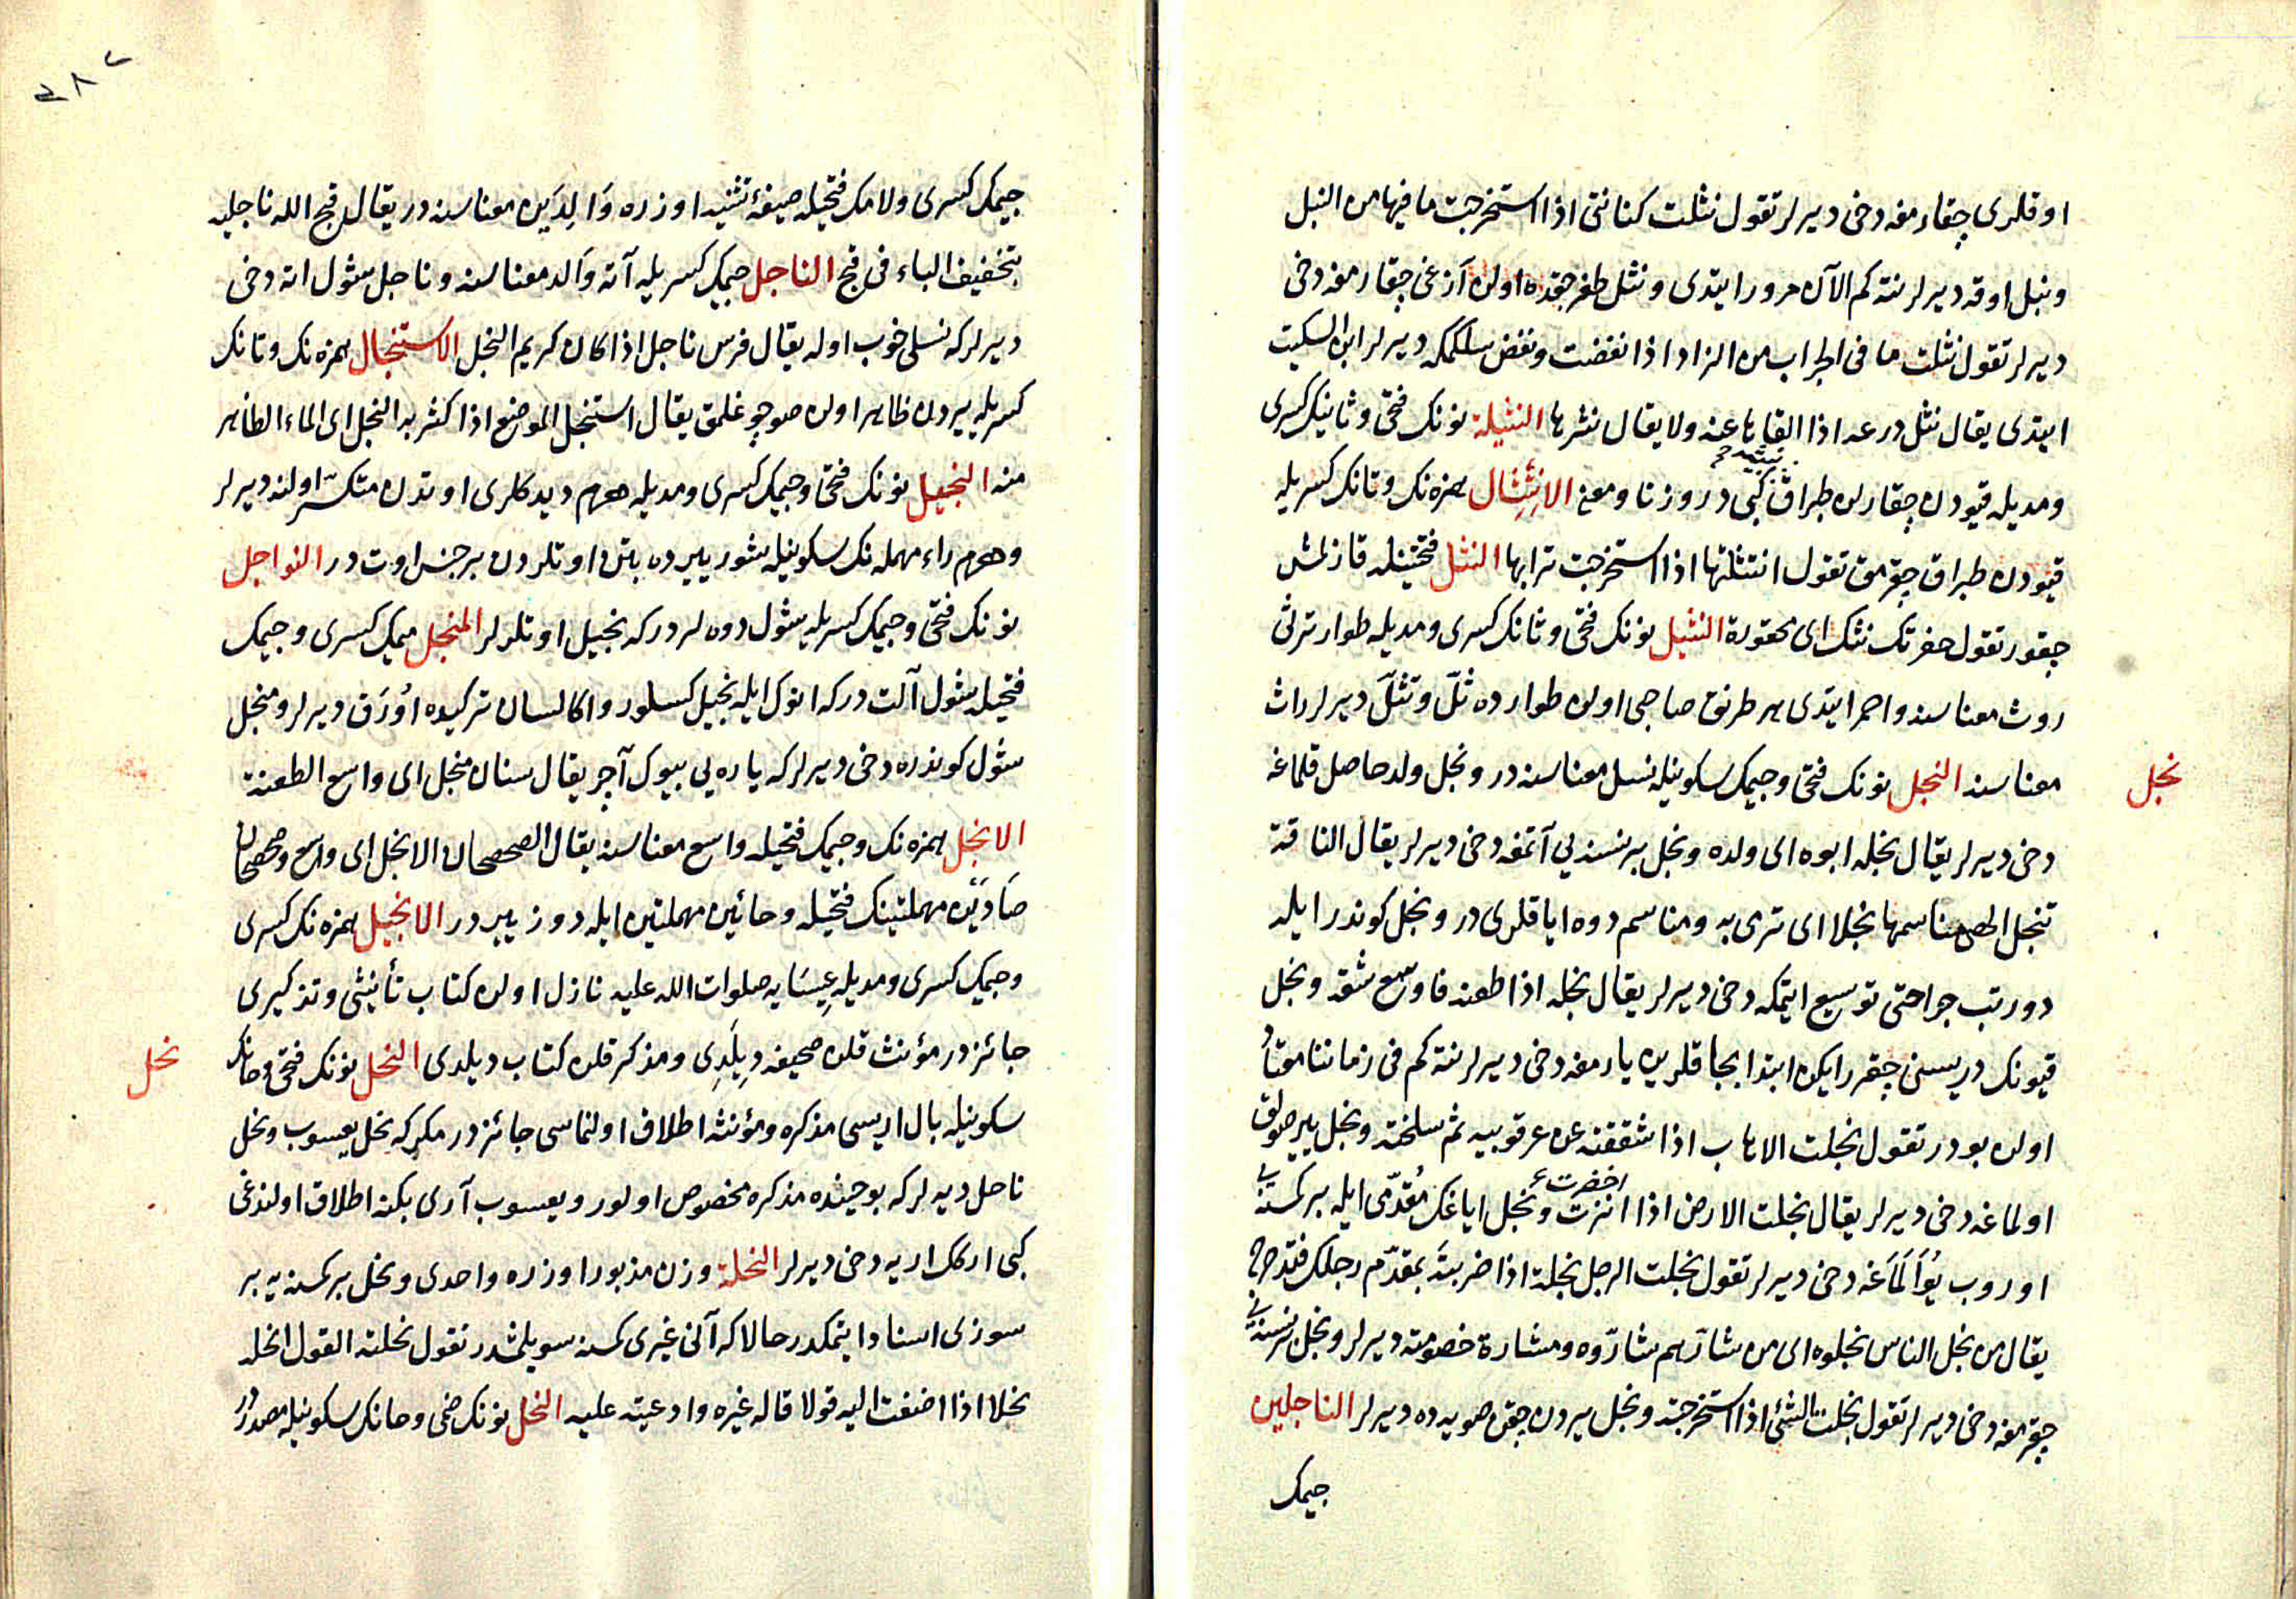 اوقلرى چقارمغه دخى ديرلر تقول نثلت كنانتى اذا استخرجت ما فيها من النبل
ونبل اوقه ديرلر نته كم الآن مرور ايتدى ونثل طغرجقده اولن آزغى چقارمغه دخى
ديرلر تقول نثلت ما فى الجراب من الزاد اذا نفضت ونفض سلكمكه ديرلر ابن السكيت
ايتدى يقال نثل درعه اذا القاها عنه ولا يقال نثرها النثيلة نونك فتحى وثانيك كسرى
ومديله قيودن چقاريلن طپراق كبى در وزنا ومعنى الانتثال همزه نك وتانك كسريله
نبيثه
قيودن طپراق چقرمق تقول انتثلتها اذا استخرجت ترابها النثل فتحتيله قازلمش
چقور تقول حفرتك نثل اى محفورة النثيل نونك فتحى وثانك كسرى ومديله طوار ترسى
روث معناسنه واحمر ايتدى هر طرنق صاحبى اولن طوارده ثلّ وتثلّ ديرلر راث
نجل
معناسنه النجل نونك فتحى وجيمك سكونيله نسل معناسنه در ونجل ولد حاصل قلماغه
دخى ديرلر يقال نجله ابوه اى ولده ونجل بر نسنه يى آتمغه دخى ديرلر يقال الناقة
تنجل الحصى مناسمها نجلا اى ترمى به ومناسم دوه اياقلرى در ونجل كوندر ايله
دورتب جراحتى توسيع ايتمكه دخى ديرلر يقال نجله اذا طعنه فاوسع شقه ونجل
قيونك دريسنى چقرر ايكن ابتدا بجاقلرين يارمغه دخى ديرلر نته كم فى زماننا معتاد
اولن بودر تقول نجلت الاهاب اذا شققته عن عرقوبيه ثم سلخته ونجل يير صولق
اولماغه دخى ديرلر يقال نجلت الارض اذا انزت ونجل اياغك مُقدّمى ايله بر كمسنه يى
اخضرت
اوروب يُوَالَمَاغه دخى ديرلر تقول نجلت الرجل نجلة اذا ضربتَه بمقدّم رجلك فتدحرج
يقال من نجل الناس نجلوه اى من شارّهم شارّوه ومشارة خصومته ديرلر ونجل بر نسنه يى
چقرمغه دخى ديرلر تقول نجلت الشئ اذا استخرجته ونجل ييردن چقن صويه ده ديرلر الناجلين
جيمك
٣٨٢
جيمك كسرى ولامك فتحيله صيغهٔ تثنيه اوزره وَالِدَين معناسنه در يقال قبح الله ناجليه
بتخفيف الباء فى قبح الناجل جيمك كسريله آته وَالد معناسنه وناجل شول اته دخى
ديرلر كه نسلى خوب اوله يقال فرس ناجل اذا كان كريم النجل الاستنجال همزه نك وتانك
كسريله ييردن ظاهر اولن صو چوغلمق يقال استنجل الموضع اذا كثر به النجل اى الماء الظاهر
منه النجيل نونك فتحى وجيمك كسرى ومديله هرم ديدكلرى اوتدن متكسّر اولنه ديرلر
وهرم راء مهمله نك سكونيله شور ييرده بتن اوتلردن بر جنس اوت در النواجل
نونك فتحى وجيمك كسريله شول دوه لر در كه نجيل اوتلرلر المنجل ميمك كسرى وجيمك
فتحيله شول آلت در كه انوك ايله نجيل كسلور واكا لسان تركيده اُورَق ديرلر ومنجل
شول كوندره دخى ديرلر كه ياره يى بيوك آچر يقال سنان منجل اى واسع الطعنة
الانجل همزه نك وجيمك فتحيله واسع معناسنه يقال الصحصحان الانجل اى واسع وصحصحان
صَادَيْن مهملتينك فتحيله وحائين مهملتين ايله دوز ييردر الانجيل همزه نك كسرى
وجيمك كسرى ومديله عِيسَايه صلوات الله عليه نازل اولن كتاب تأنيثى وتذكيرى
نحل
جائزدر مؤنث قلن صحيفه دِيلَدِى ومذكر قلن كتاب ديلدى النحل نونك فتحى وحانك
سكونيله بال اريسى مذكره ومؤنثه اطلاق اولنماسى جائزدر مكر كه نحل يعسوب ونحل
ناحل ديه لر كه بو حينده مذكره مخصوص اولور ويعسوب آرى بكنه اطلاق اولندغى
كبى اركك ارىيه دخى ديرلر النحلة وزن مذبور اوزره واحدى ونحل بر كمسنه يه بر
سوزى اسناد ايتمكدر حالا كه آنى غيرى كمسنه سويلمشدر تقول نحلته القول انحله
نحلا اذا اضفت اليه قولا قاله غيره وادعيته عليه النحل نونك ضمى وحانك سكونيله مصدر در